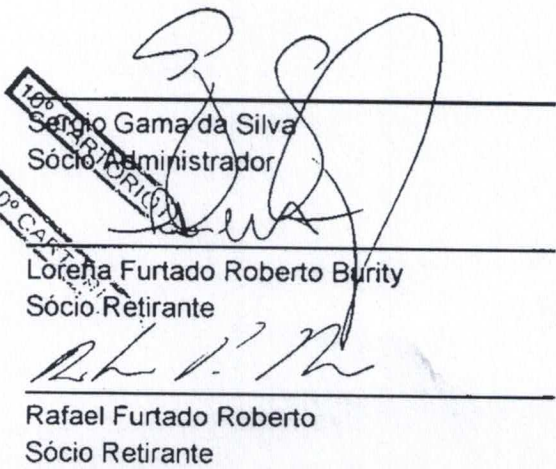 10º CARTÓRIO
Sergio Gama da Silva
Sócio Administrador
0º CARTÓRI
Loreña Furtado Roberto Burity
Sócio Retirante
Rafael Furtado Roberto
Sócio Retirante